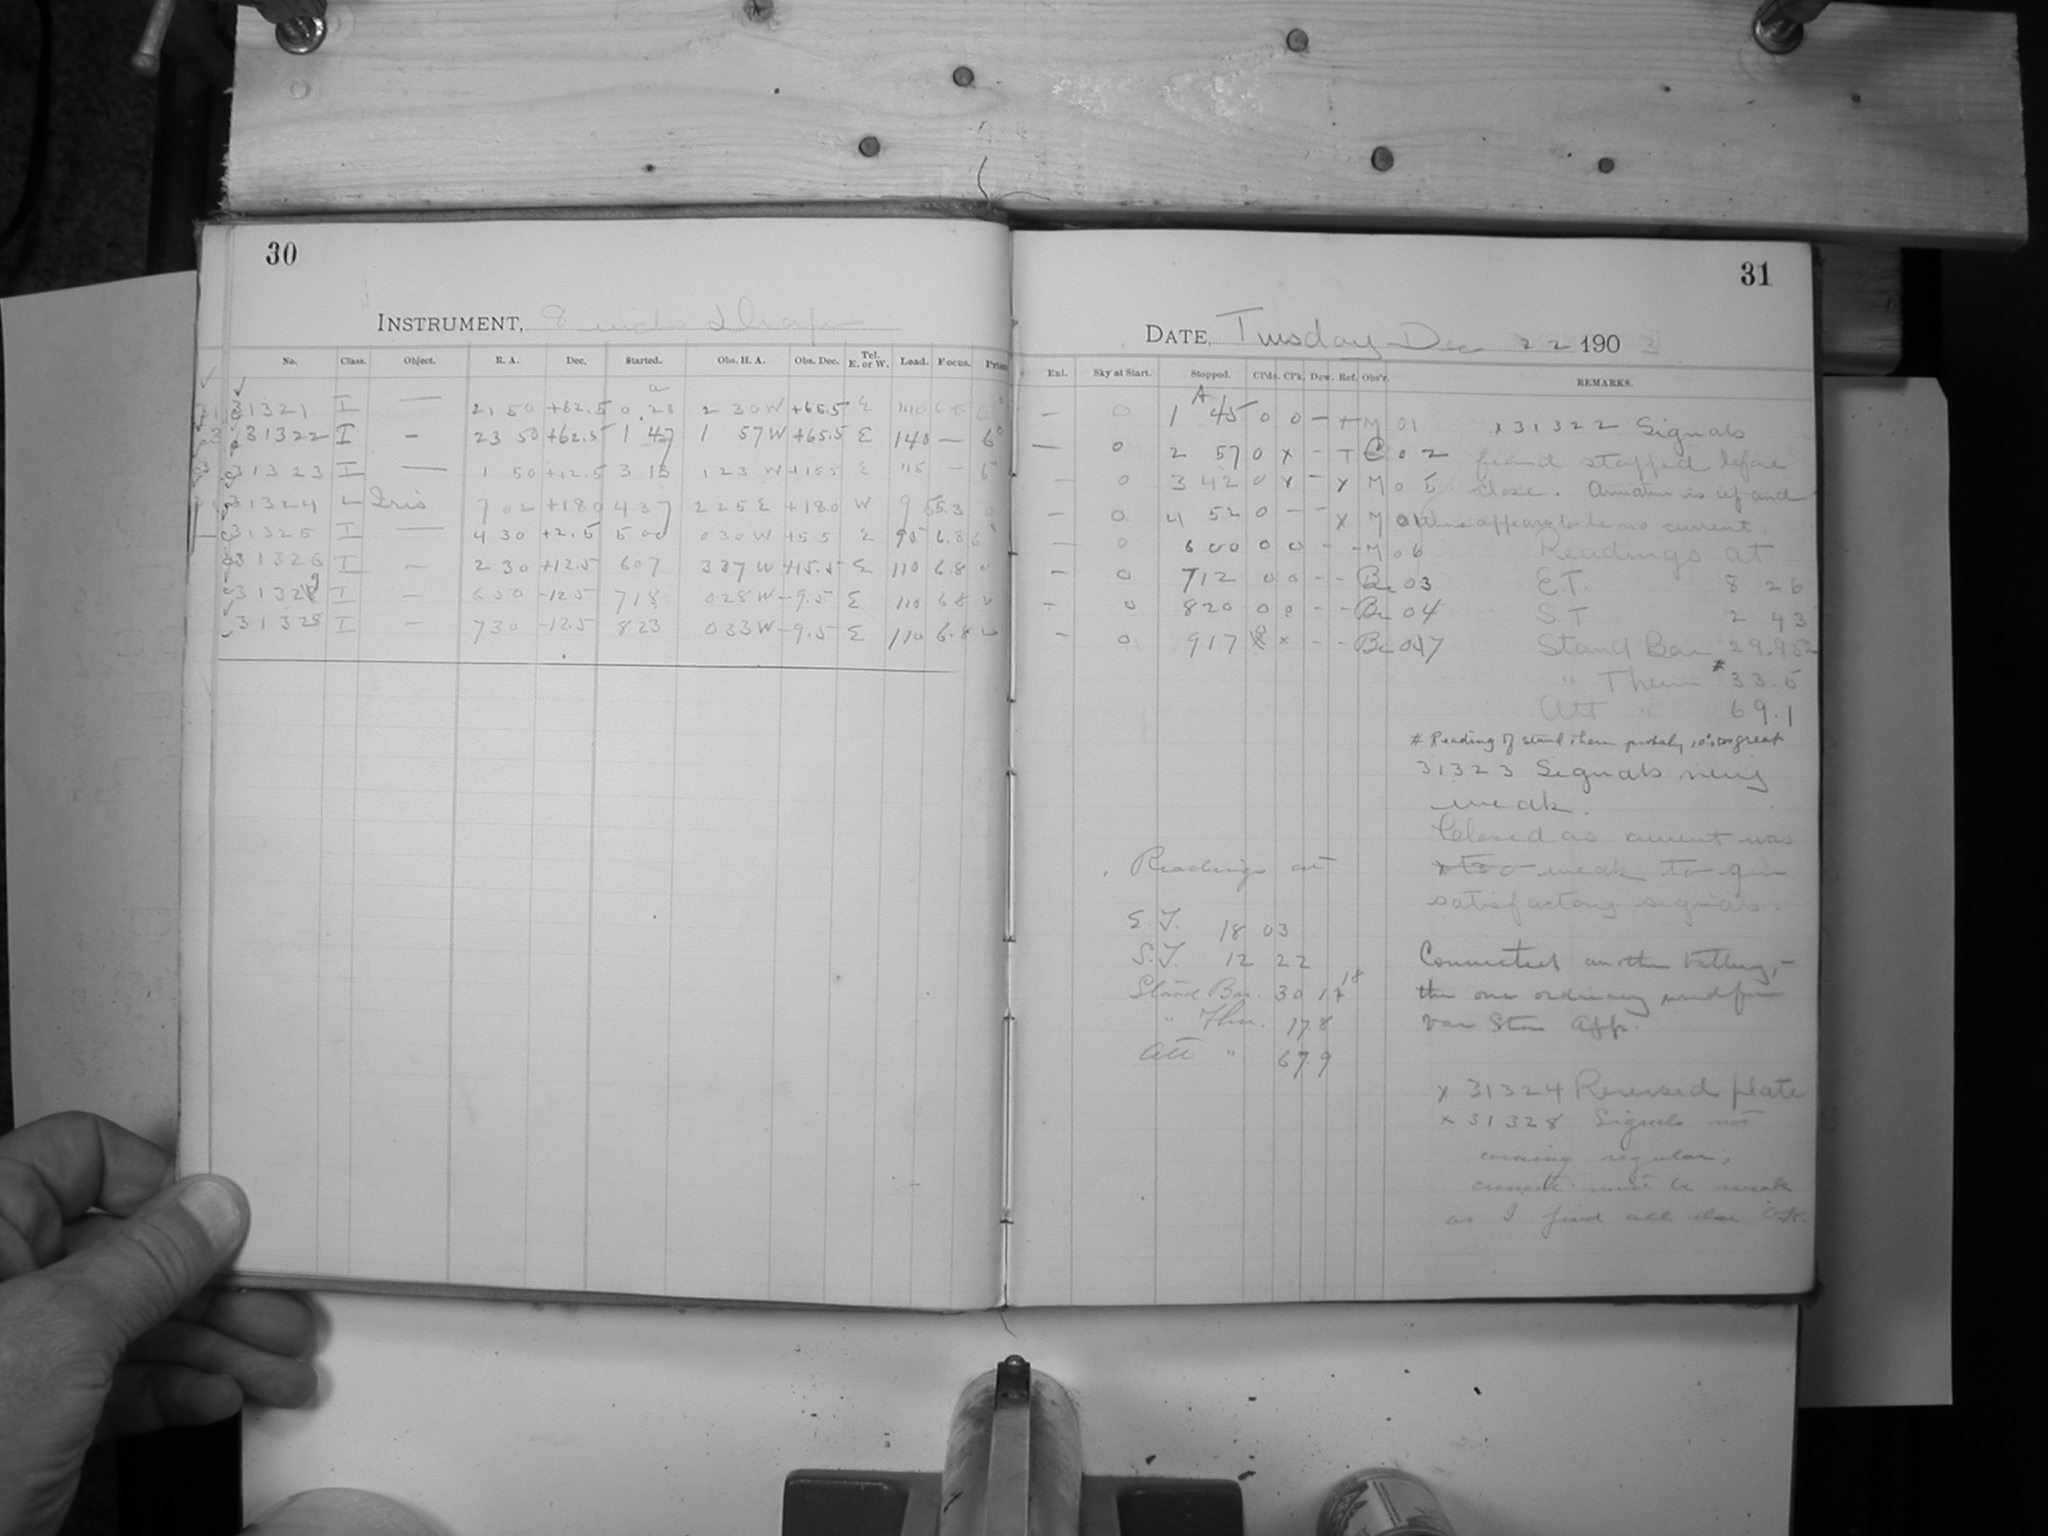 30
INSTRUMENT, 8 inch Draper
No. Class. Object. R. A. Dec. Started. Obs. H. A. Obs. Dec. Tel. E. or W. Load. Focus. Prism
31321 I — 21 50 +62.5 0 23 2 30 W +65.5 E 140
31322 I — 23 50 +62.5 1 47 1 57 W +65.5 E 140 — 6
31323 I — 1 50 +12.5 3 13 1 23 W +15.5 E —
31324 L Iris 7 02 +18 0 4 37 2 25 E +18.0 W
31325 I — 4 30 +2.5 5 00 0 30 W +5.5 E 95 6.8
31326 I — 2 30 +12.5 6 07 3 37 W +15.5 E 110 6.8
3132 I — 6 50 -12.5 7 18 0 28 W -9.5 E 110 6.8
31328 I — 7 30 -12.5 8 23 0 33 W -9.5 E 110 6.8
31
DATE, Tuesday Dec 22 190 3
Exl. Sky at Start. Stopped. Cl'ds. Cl'k. Dew. Ref. Obs'r. REMARKS.
— 0 1 45 0 0 — + M 01 x 31322 Signals
— 0 2 57 0 x — T C 02 found stopped before
— 0 3 42 0 x — x M 05 close. Armature is up and
— 0 4 52 0 — — x M 01 there appears to be no current.
— 0 6 00 0 0 — — M 06 Readings at
— 0 7 12 0 0 — — Be 03 E.T. 8 26
— 0 8 20 0 0 — — Be 04 S T 2 43
— 0 9 17 x — — Be 07 Stand Bar 29.952
" Ther # 33.5
Att " 69.1
# Reading of stand Therm probably 10° too great
31323 Signals very
weak.
Closed as current was
x too weak to give
satisfactory signals.
Readings at
E.T. 18 03
S.T. 12 22
Stand Bar. 30 17 18
" Ther. 17.8
Att " 67.9
Connected another battery, -
the one ordinarily used for
Var Star App.
x 31324 Reversed plate
x 31328 Signals not
coming regular,
current must be weak
as I find all else O.K.